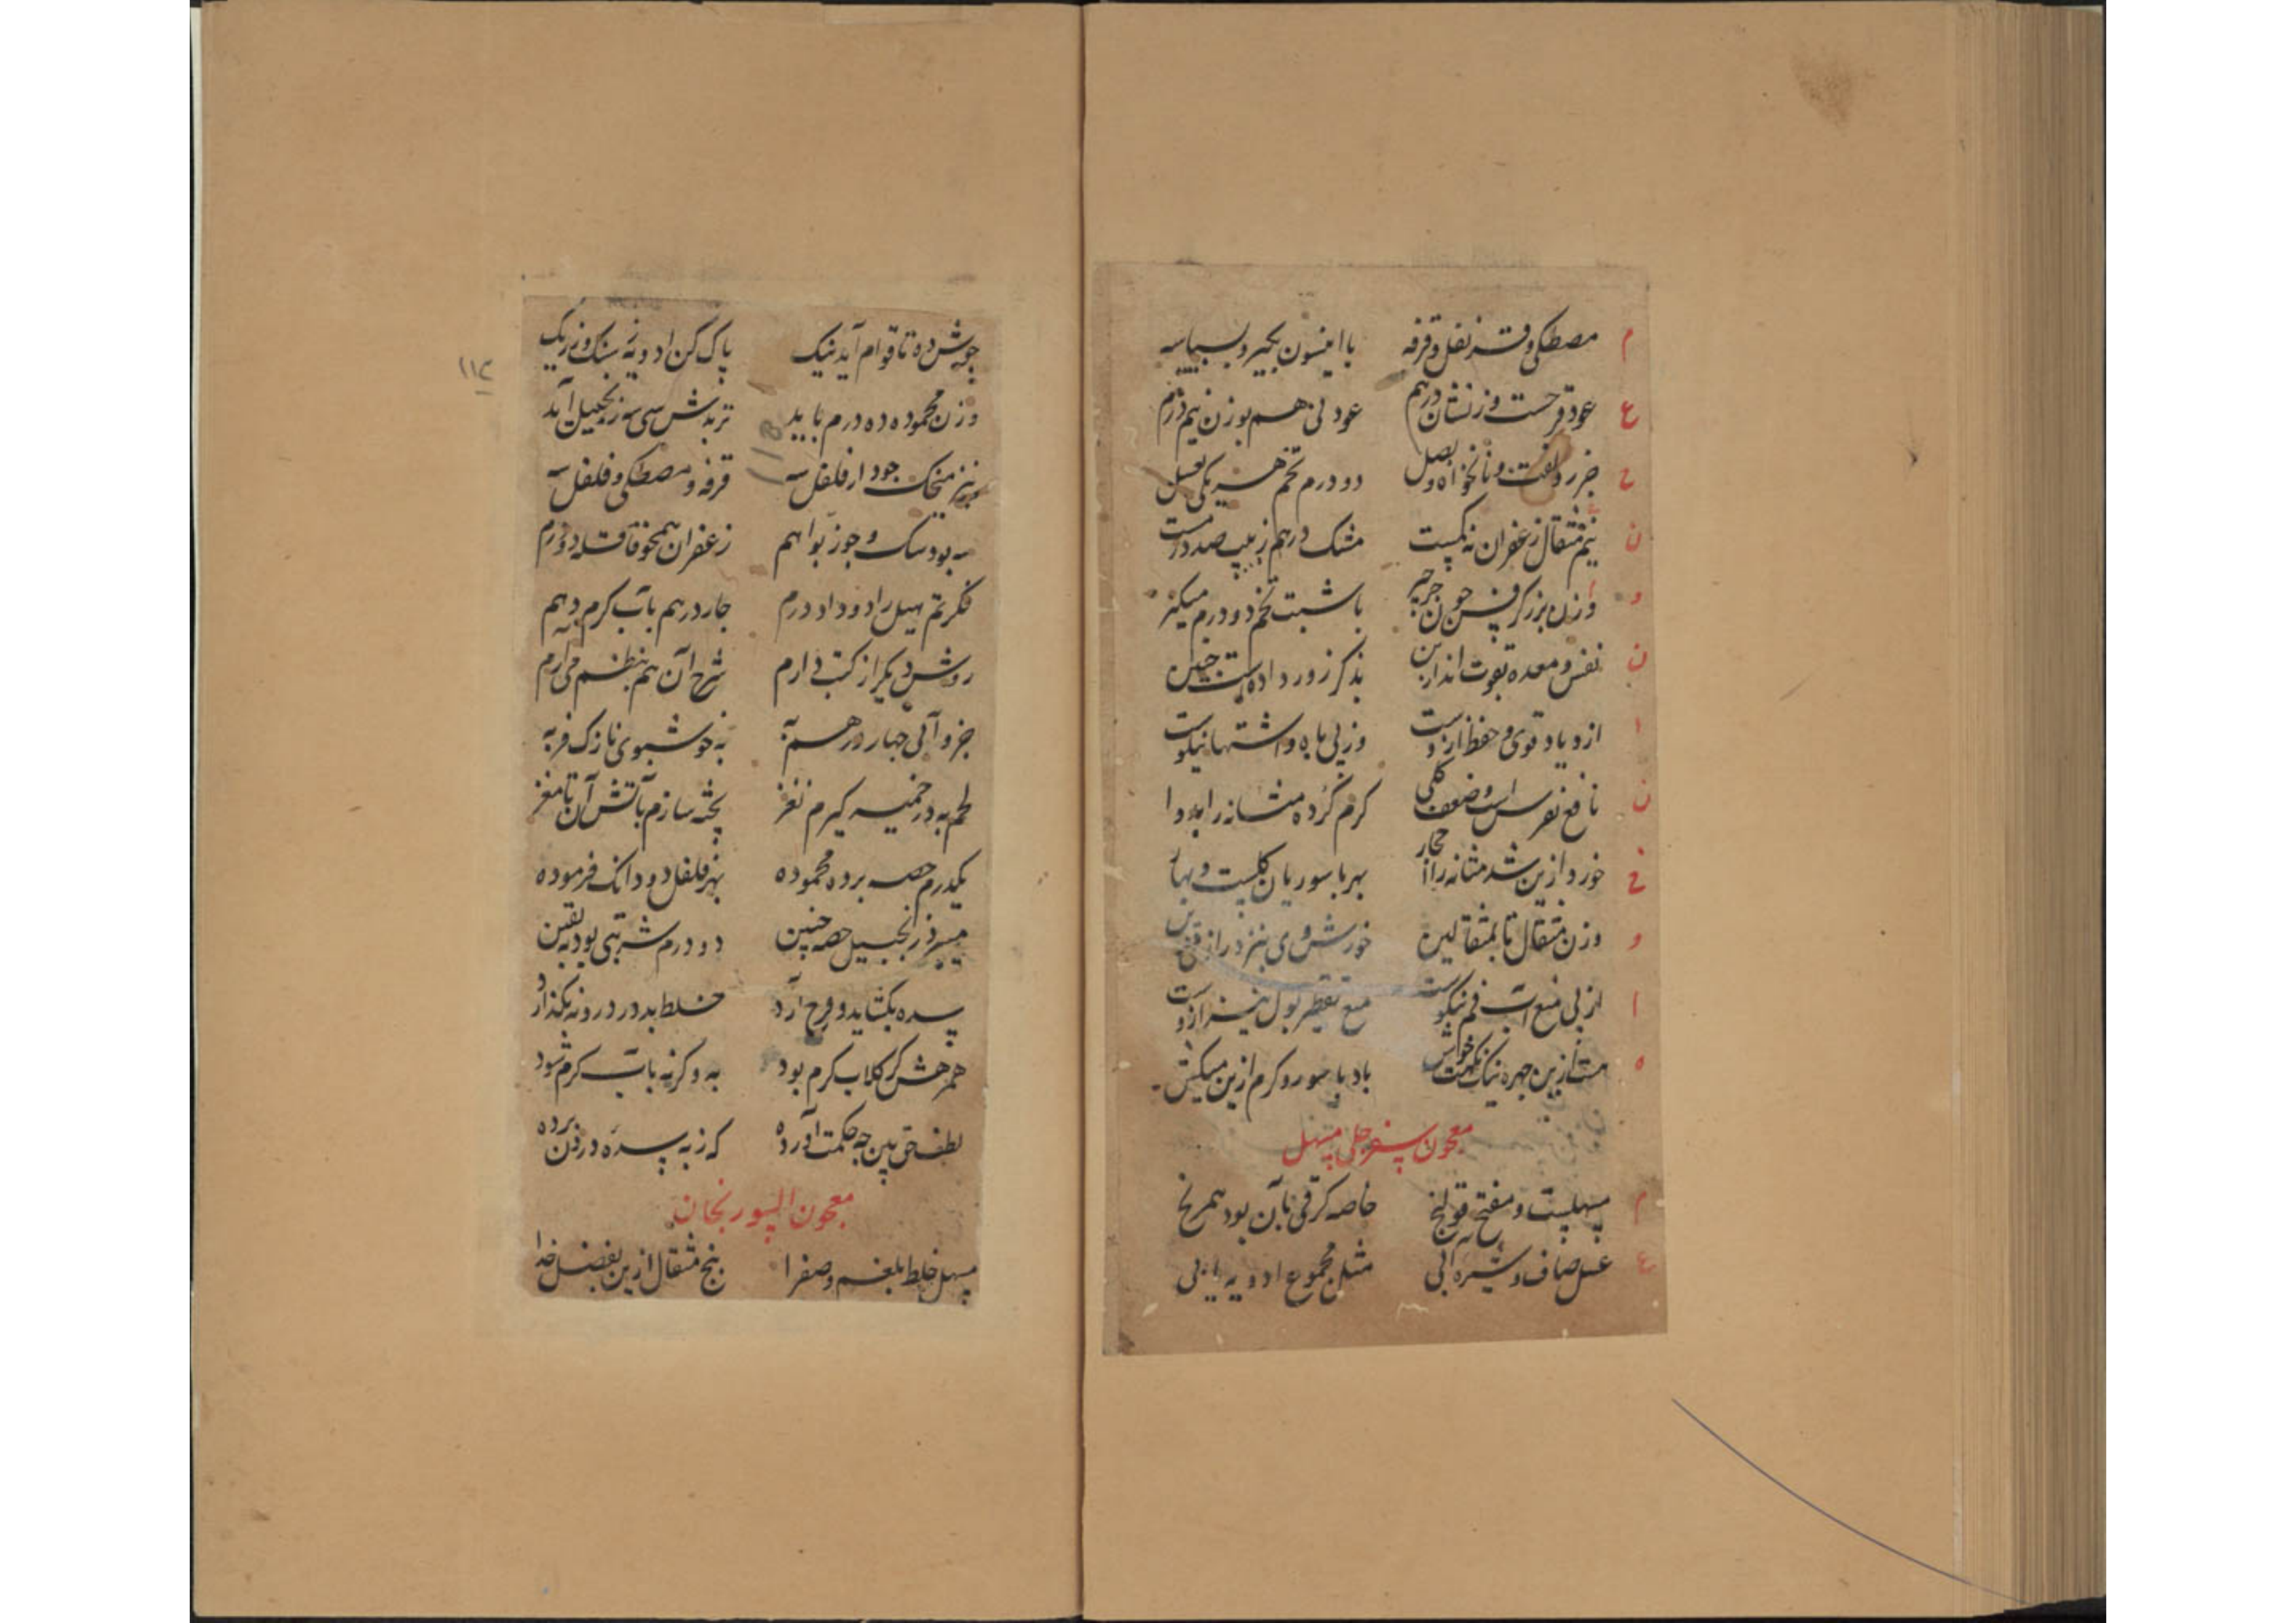 م مصطکی و قرنفل و قرفه با انیسون بگیر و بسباسه
ع عود قرحست وزنشان درهم عود نی هم بوزن نیم درم
ح جزر و لفت و نانخواه و بصل دو درم تخم هر یکی بعسل
ن نیم مثقال زعفران نه کمست مشک درهم زبیب صد درمست
و وزن بزر کرفس چون جرجیر با شبت تخم دو درم میکیر
ن نفس و معده بقوت اندازین بذکر زور داده است چنین
ا ازدیاد قوی و حفظ ازوست وز پی باه و اشتها نیکوست
ن نافع نقرس است و ضعف کلی کرم کرده مثانه را
خ خورد ازین شد مثانه را احجار بهر باسوریان کلیست و بهار
و وزن مثقال تا بمثقالین خورش وی نیز در
ا از پی منع آب فم نیکوست منع تقطیر بول نیز ازوست
ه هست ازین چهره نیک نکهت خوش باد باسور و کرم ازین میکش
معجون سفرجلی مسهل
م مسهلست و مفتح قولنج خاصه کز قی بآن بود همرنج
ع عسل صاف و شیره آبی مثل مجموع ادویه یابی
جوش ده تا قوام آید نیک پاک کن ادویه ز سنک و ز ریک
۱۱۲
وزن محموده ده درم باید تربدش سی سه زنجبیل آید
نیز میخک چو دار فلفل سه قرفه و مصطکی و فلفل سه
سه بود سک و جوز بوا هم زعفران همچو قاقله دو درم
ذکر تم هیل را دو داد درم چار درهم بآب کرم دهم
روش دیکر از کتب دارم شرح آن هم بنظم می آرم
جزو آبی چهار درهم به به خوشبوی نازک فربه
لحم به در خمیر کیرم نغز پخته سازم بآتش آن تا مغز
یکدرم حصه برده محموده بهر فلفل دو دانک فرموده
میبرد زنجبیل حصه چنین دو درم شربتی بود بیقین
سده بکشاید و فرح آرد خلط بد در درونه نکذارد
همرهش کر کلاب کرم بود به و کرنه بآب کرم شود
لطف حق بین چه حکمت آورده که ز به سده در فن برده
معجون السورنجان
مسهل خلط بلغم و صفرا پنج مثقال ازین بفضل خدا